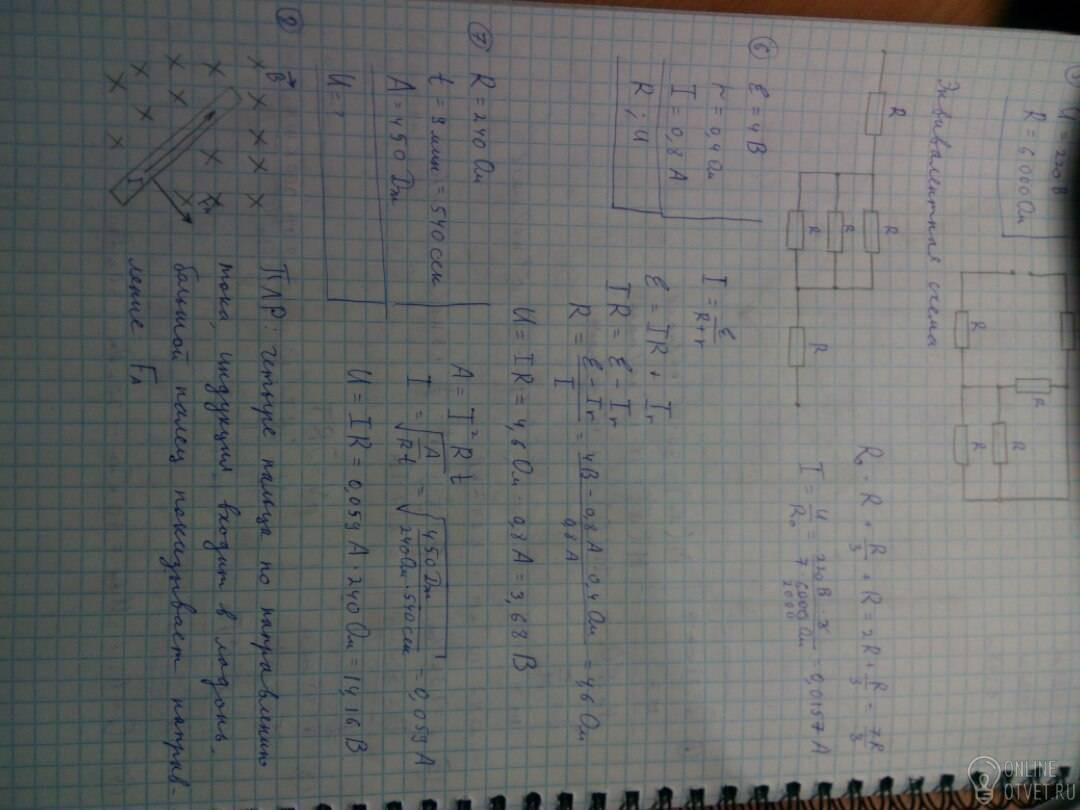 U = 220 В
R = 6000 Ом
R
R
R
R
Эквивалентная схема
R
R
R
R
R
R₀ = R + R/3 + R = 2R + R/3 = 7R/3
I = U/R₀ = 220 В · 3 / 7 · 6000 Ом = 0,0157 А
2000
⑥ ℰ = 4 В
r = 0,4 Ом
I = 0,8 А
R; U
I = ℰ/R+r
ℰ = IR + Ir
IR = ℰ - Ir
R = ℰ - Ir / I = 4В - 0,8 А · 0,4 Ом / 0,8 А = 4,6 Ом
U = IR = 4,6 Ом · 0,8 А = 3,68 В
⑦ R = 240 Ом
t = 9 мин = 540 сек
A = 450 Дж
U = ?
A = I² R t
I = √A/Rt = √450 Дж / 240 Ом · 540 сек = 0,059 А
U = IR = 0,059 А · 240 Ом = 14,16 В
⑧
B
I
Fл
ПЛР: четыре пальца по направлению
тока, индукция входит в ладонь,
большой палец показывает направ-
ление Fл
ONLINE
OTVET.RU